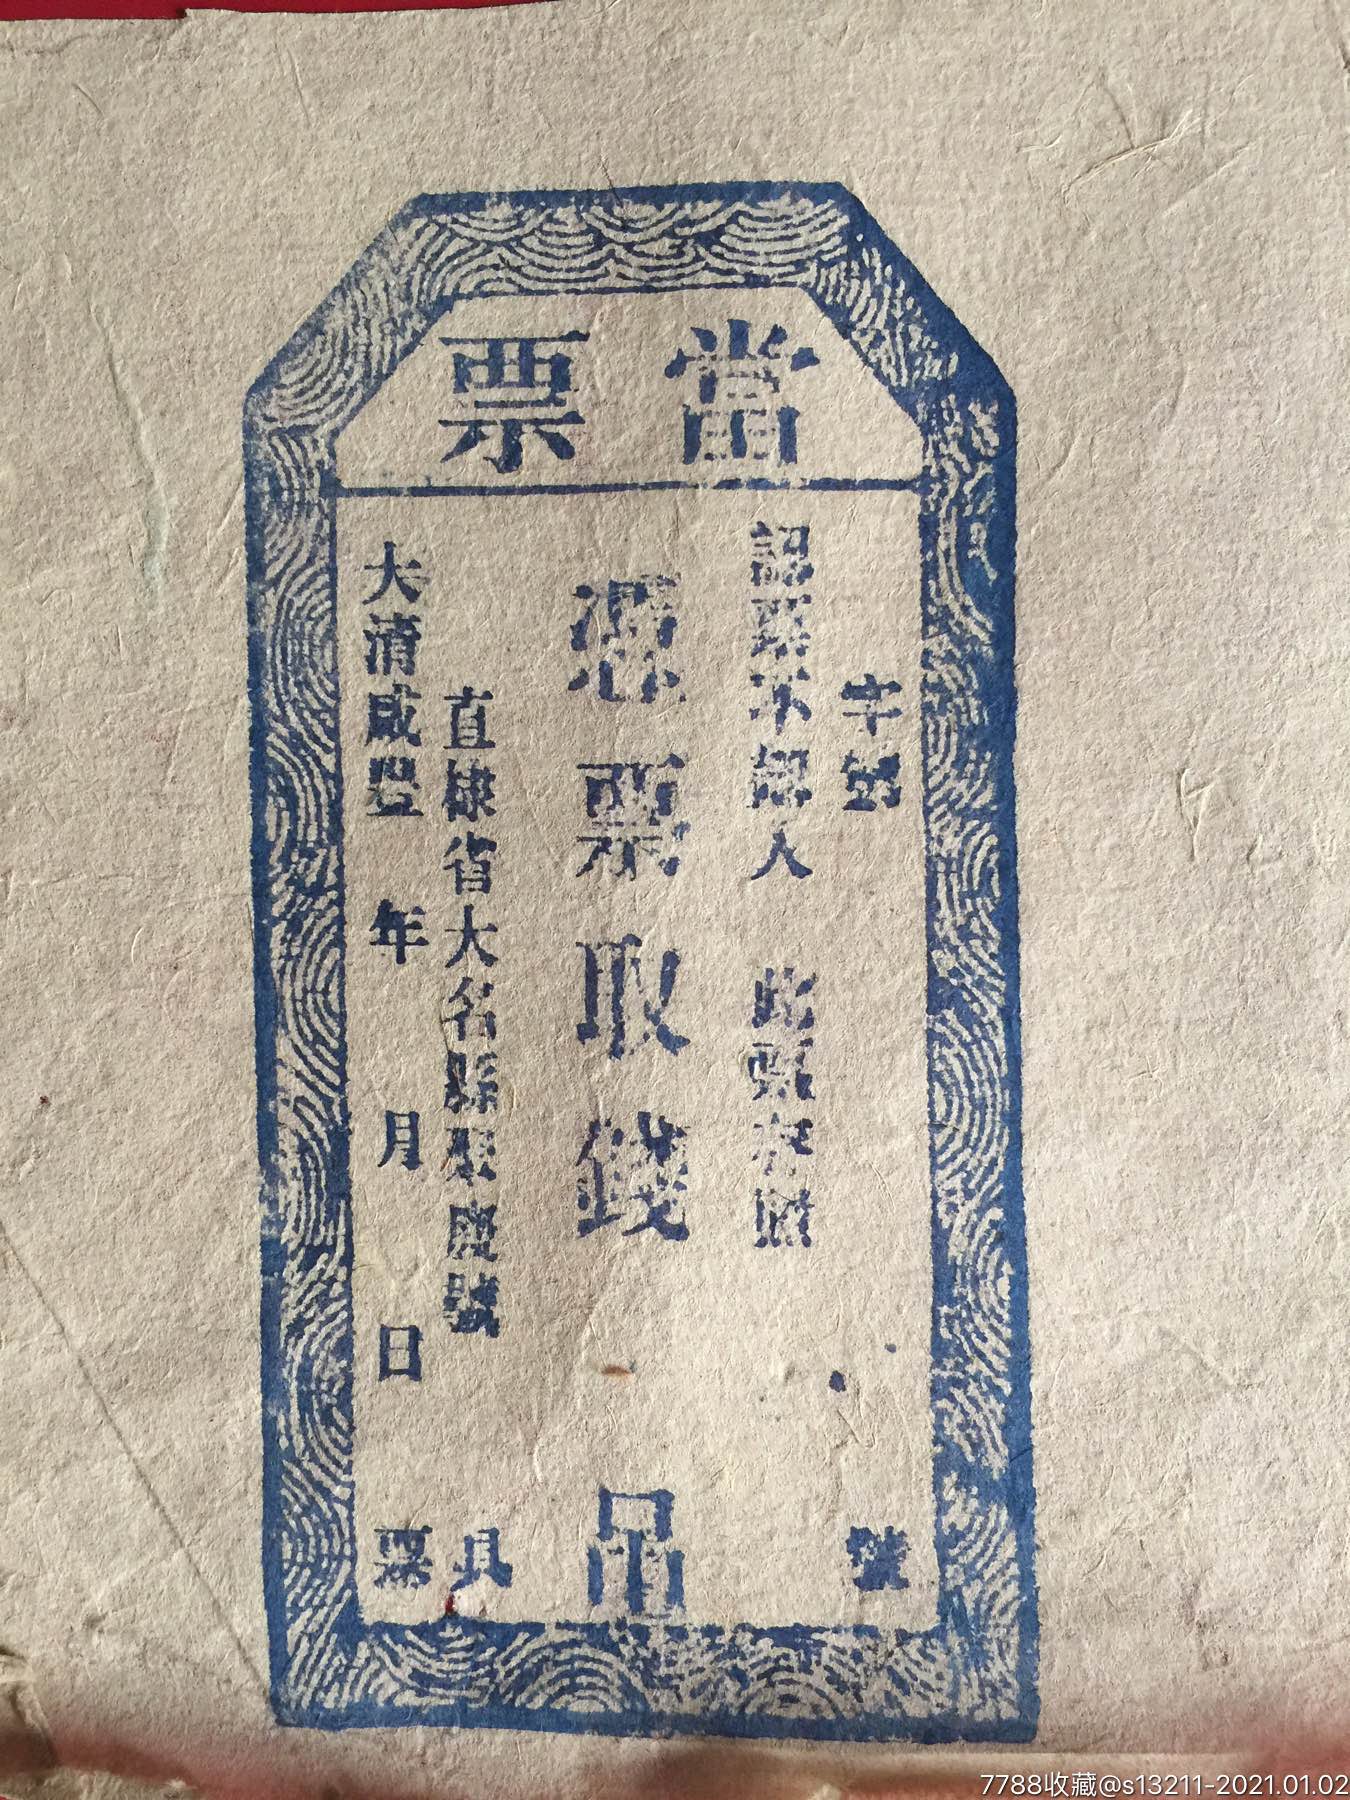 當票
字第 號
認票不認人 此票存照
憑票取錢 吊
直棣省大名縣聚慶號 具
大清咸豐 年 月 日 票
7788收藏@s13211-2021.01.02